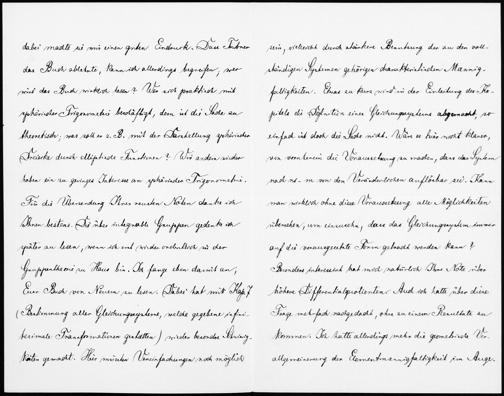 dabei machte sie mir einen guten Eindruck. Dass Teubner
das Buch ablehnte, kann ich allerdings begreifen, wer
wird das Buch wirklich lesen? Wer sich praktisch mit
sphärischer Trigonometrie beschäftigt, dem ist die Sache zu
theoretisch; was soll er z.B. mit der Darstellung sphärischer
Dreiecke durch elliptische Functionen? Wir andern wieder
haben ein zu geringes Interesse an sphärischer Trigonometrie.
Für die Übersendung Ihrer neuesten Noten danke ich
Ihnen bestens. Die über integrable Gruppen gedenke ich
später zu lesen, wenn ich erst wieder ordentlich in der
Gruppentheorie zu Haus bin. Ich fange eben damit an,
Euer Buch von Neuem zu lesen. Dabei hat mir Kap. 7
(Bestimmung aller Gleichungssysteme, welche gegebene infini-
tesimale Transformationen gestatten) wieder besondere Schwierig-
keiten gemacht. Hier müssten Vereinfachungen noch möglich
sein, vielleicht durch stärkere Benutzung der zu den voll-
ständigen Systemen gehörigen charakteristischen Mannig-
faltigkeiten. Etwas zu kurz wird in der Einleitung des Ka-
pitels die Definition eines Gleichungssystems abgemacht, so
einfach ist doch die Sache nicht. Wäre es hier nicht klarer,
von vornherein die Voraussetzung zu machen, dass das System
nach n-m von den Veränderlichen auflösbar sei. Kann
man wirklich ohne diese Voraussetzung alle Möglichkeiten
übersehen, um einzusehn, dass das Gleichungssystem immer
auf die vorausgesetzte Form gebracht werden kann?
Besonders interessirt hat mich natürlich Ihre Note über
höhere Differentialquotienten. Auch ich hatte über diese
Frage viel nachgedacht, ohne zu einem Resultate zu
kommen. Ich hatte allerdings mehr die geometrische Ver-
allgemeinerung der Elementmannigfaltigkeit im Auge.